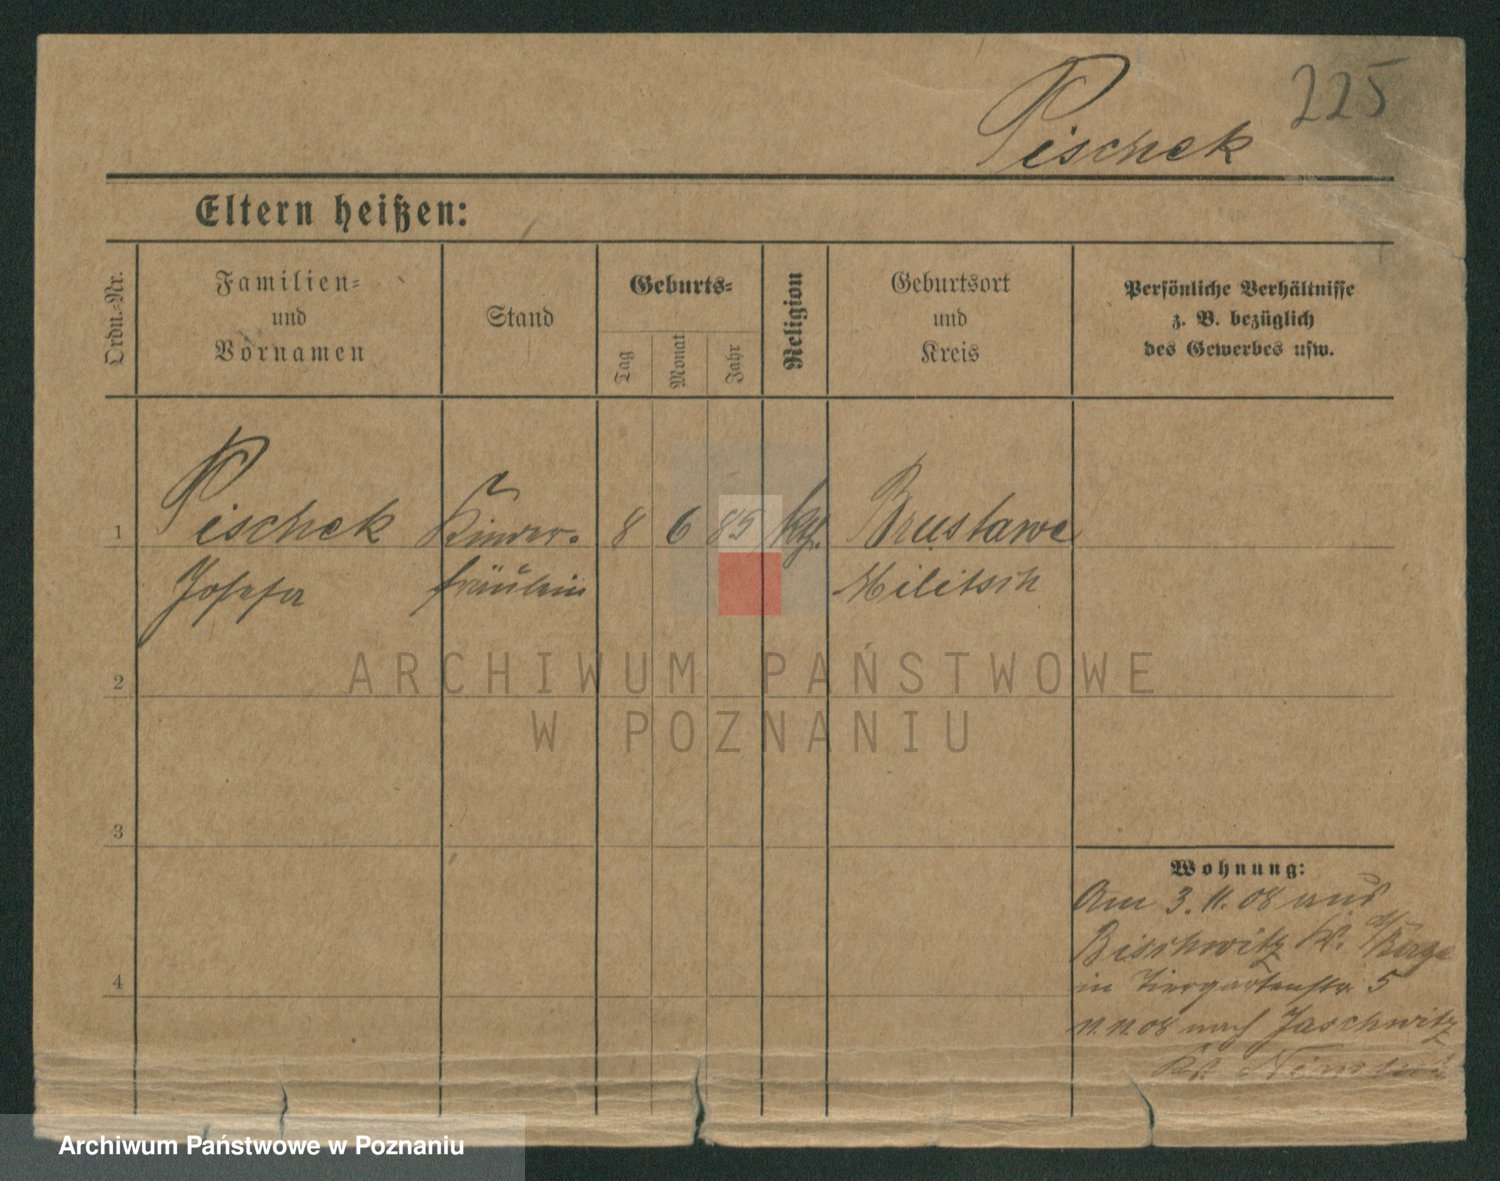 225
Pischek
Eltern heißen:
Ordn.-Nr.
Familien-
und
Vornamen
Stand
Geburts-
Tag
Monat
Jahr
Religion
Geburtsort
und
Kreis
Persönliche Verhältnisse
z. B. bezüglich
des Gewerbes usw.
1
Pischek
Kinder-
8
6
85
ktḥ.
Brustawe
Josefa
fräulein
Militsch
ARCHIWUM PAŃSTWOWE
W POZNANIU
2
3
4
Wohnung:
Am 3.11.08 aus
Bischwitz a/Berge
in Tiergartenstr. 5
11.11.08 nach Jaschwitz
Archiwum Państwowe w Poznaniu